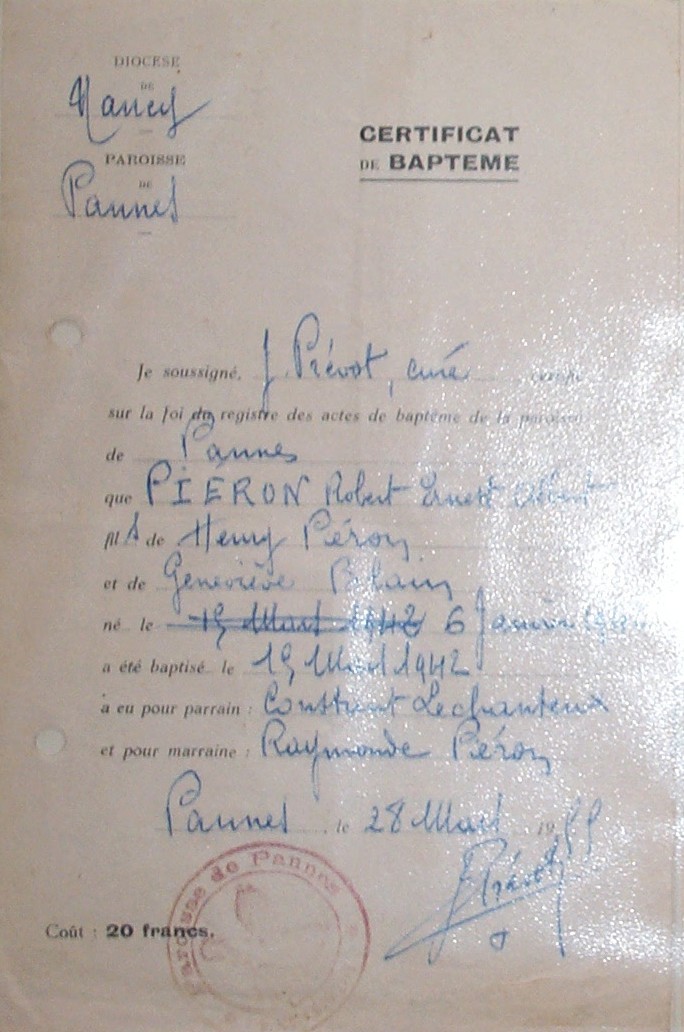 DIOCESE
DE
Nancy
PAROISSE
DE
Pannes
CERTIFICAT
DE BAPTEME
Je soussigné, J. Prévot, curé
sur la foi du registre des actes de baptême de la paroisse
de Pannes
que PIERON Robert Ernest Albert
fils de Henry Péron
et de Geneviève Blain
né le 15 Mars 1942 6 Janvier
a été baptisé le 15 Mars 1942
a eu pour parrain : Constant Lechanteux
et pour marraine : Raymonde Péron
Pannes, le 28 Mars 1955
J Prévot
Paroisse de Pannes
Coût : 20 francs.